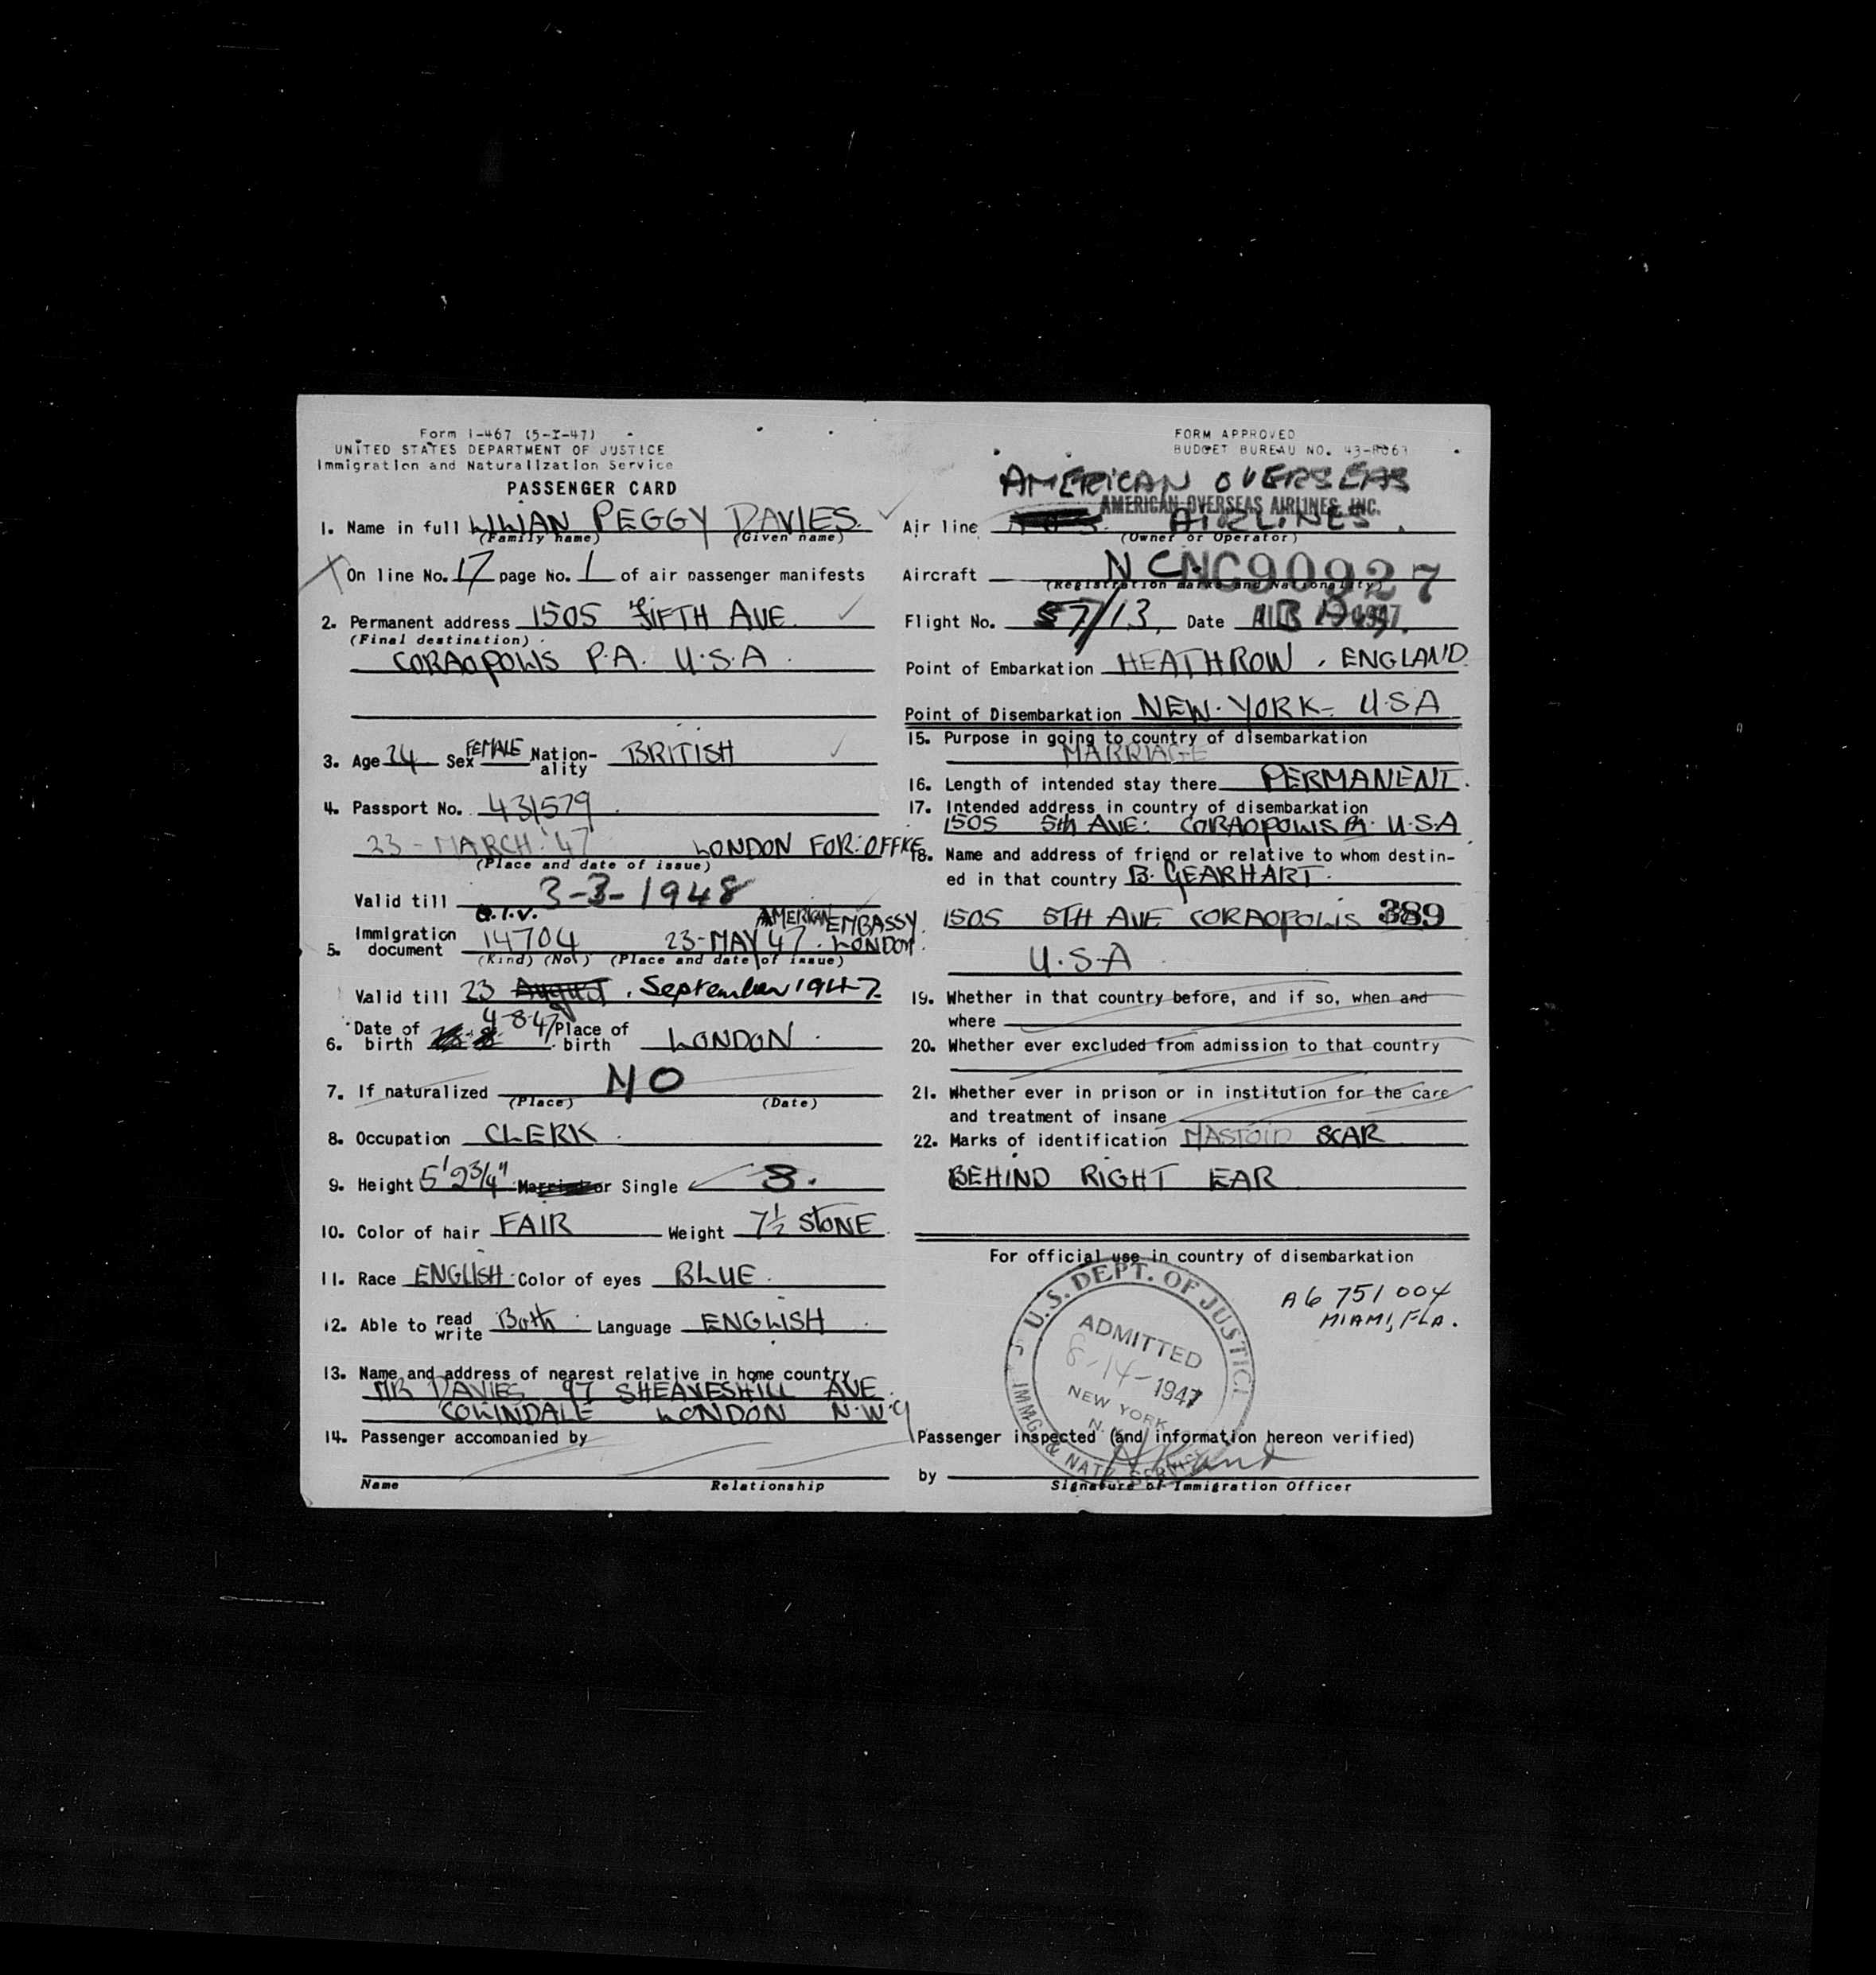 Form I-467 (5-I-47)
UNITED STATES DEPARTMENT OF JUSTICE
Immigration and Naturalization Service
PASSENGER CARD
1. Name in full LILLIAN PEGGY DAVIES
(Family name) (Given name)
On line No. 17 page No. 1 of air passenger manifests
2. Permanent address 1505 FIFTH AVE.
(Final destination)
CORAOPOLIS P.A. U.S.A.
3. Age 24 Sex FEMALE Nationality BRITISH
4. Passport No. 431579
23-MARCH '47 LONDON FOR: OFFICE
(Place and date of issue)
Valid till 3-3-1948
5. Immigration document Q.I.V. 14704 23-MAY 47. AMERICAN EMBASSY. LONDON.
(Kind) (No.) (Place and date of issue)
Valid till 23 August, September 1947
6. Date of birth 4-8-47 Place of birth LONDON
7. If naturalized NO
(Place) (Date)
8. Occupation CLERK
9. Height 5' 2 3/4" Married or Single S.
10. Color of hair FAIR Weight 7 1/2 STONE
11. Race ENGLISH Color of eyes BLUE.
12. Able to read write Both Language ENGLISH
13. Name and address of nearest relative in home country
MR DAVIES 97 SHEAVESHILL AVE
COLINDALE LONDON N.W.9
14. Passenger accompanied by
Name Relationship
FORM APPROVED
BUDGET BUREAU NO. 43-R063
AMERICAN OVERSEAS
AMERICAN OVERSEAS AIRLINES, INC.
Air line AIRLINES.
(Owner or Operator)
Aircraft NC. NC90927
(Registration marks and Nationality)
Flight No. 57/13. Date 1947
Point of Embarkation HEATHROW, ENGLAND
Point of Disembarkation NEW YORK - U.S.A
15. Purpose in going to country of disembarkation
MARRIAGE
16. Length of intended stay there PERMANENT.
17. Intended address in country of disembarkation
1505 5th AVE: CORAOPOLIS PA. U.S.A
18. Name and address of friend or relative to whom destined in that country B. GEARHART.
1505 5TH AVE CORAOPOLIS 389
U.S.A
19. Whether in that country before, and if so, when and
where
20. Whether ever excluded from admission to that country
21. Whether ever in prison or in institution for the care
and treatment of insane
22. Marks of identification MASTOID SCAR
BEHIND RIGHT EAR
For official use in country of disembarkation
A6 751 004
MIAMI, FLA.
U.S. DEPT. OF JUSTICE
ADMITTED
8-14-1947
NEW YORK
N.
IMMG. & NATZ. SERVICE
Passenger inspected (and information hereon verified)
by
Signature of Immigration Officer